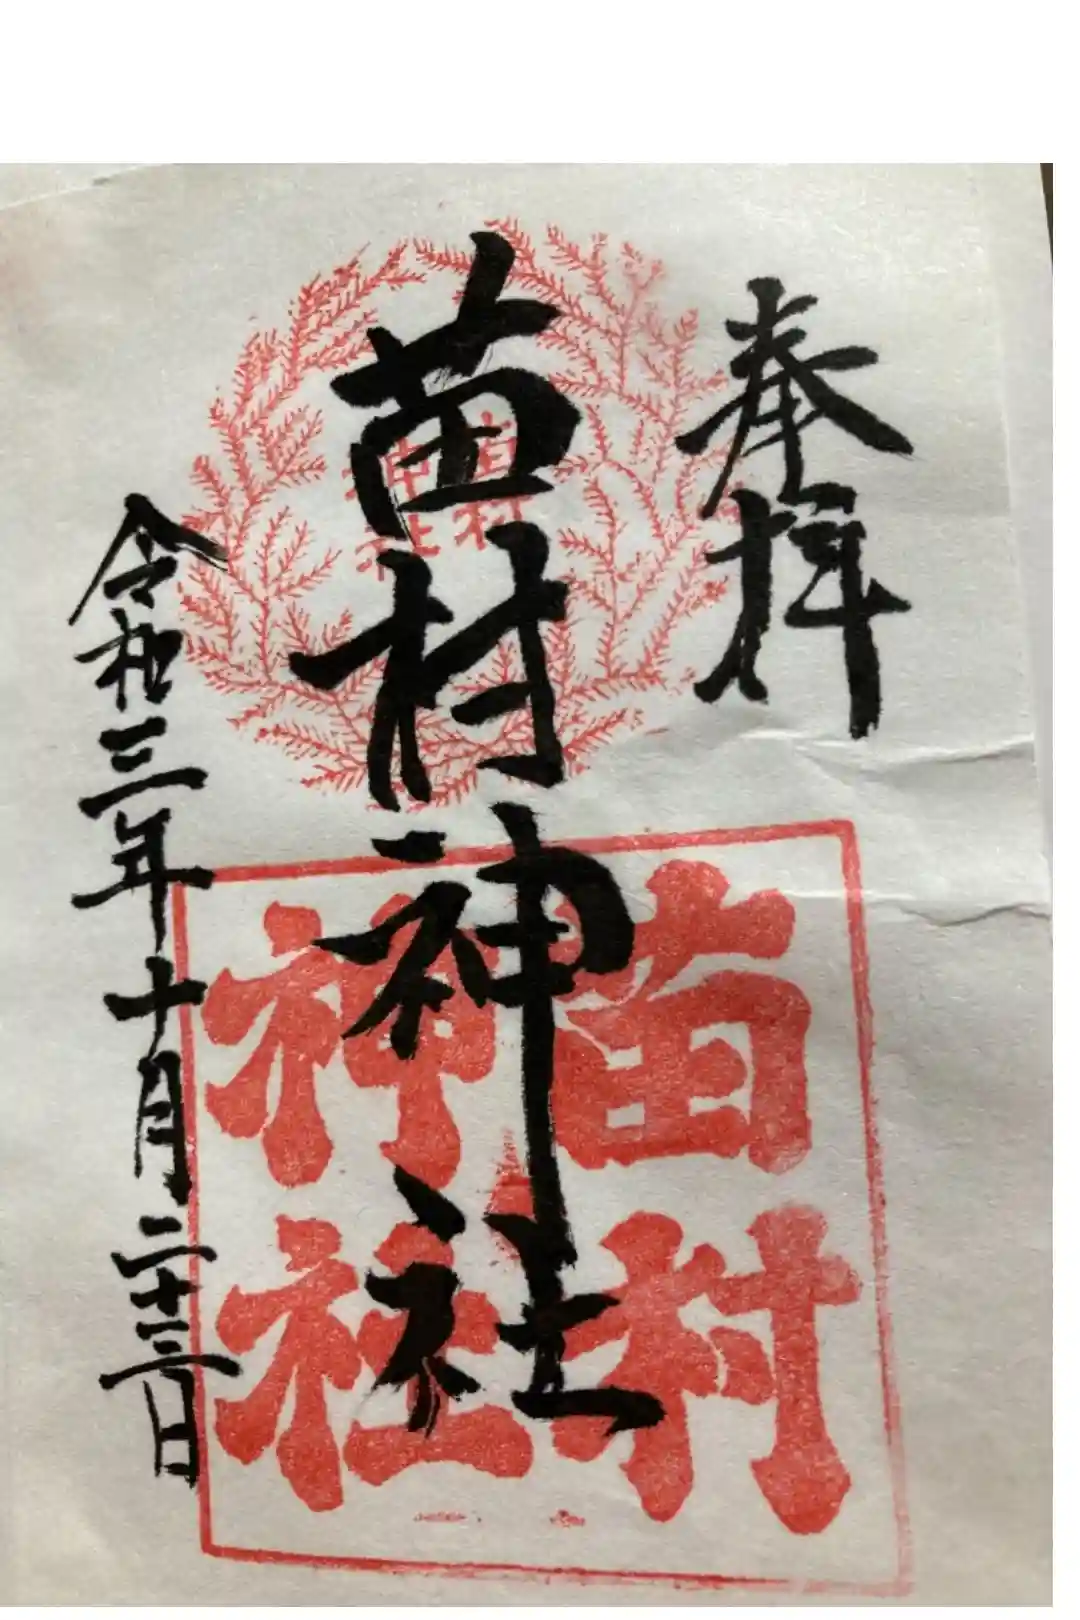 奉拝
苗村神社
令和三年十月二十三日
苗村
神社
苗村
神社